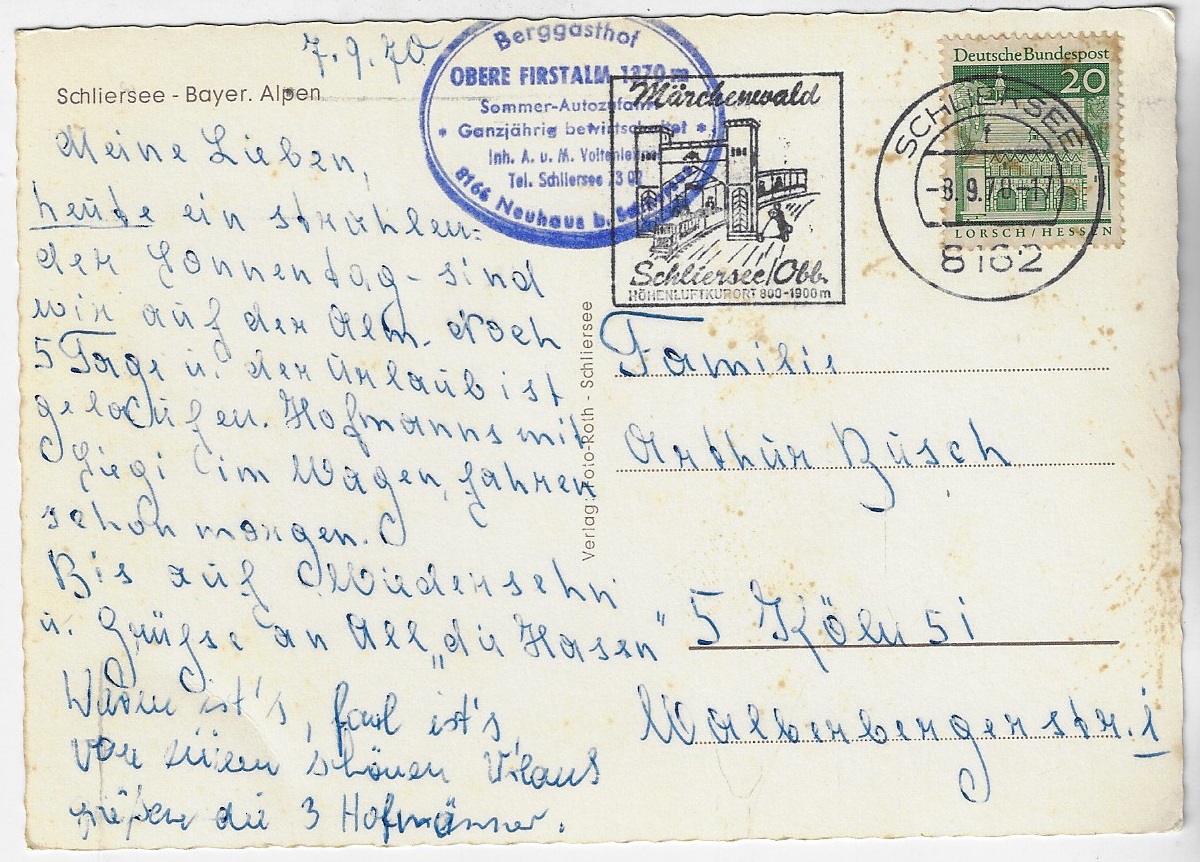 7.9.70
Schliersee - Bayer. Alpen
Meine Lieben,
heute ein strahlen=
der Sonnentag - sind
wir auf der Alm. Noch
5 Tage u. der Urlaub ist
gelaufen. Hofmanns mit
im Wagen, fahren
schon morgen.
Bis auf Wiedersehn
u. Grüße an All „die Hasen"
Warm ist's, faul ist's,
schönen Urlaub
grüßen die 3 Hofmänner.
Berggasthof
OBERE FIRSTALM 1370 m
Sommer-Autozufahrt
* Ganzjährig bewirtschaftet *
Inh. A. u. M.
Tel. Schliersee
8166 Neuhaus b.
Märchenwald
Schliersee/Obb.
HÖHENLUFTKURORT 800-1900 m
Deutsche Bundespost
20
LORSCH/HESSEN
SCHLIERSEE
-8.9.70-17
8162
Verlag: Foto-Roth - Schliersee
Familie
Arthur Busch
5 Köln 51
Walberbergerstr. 1